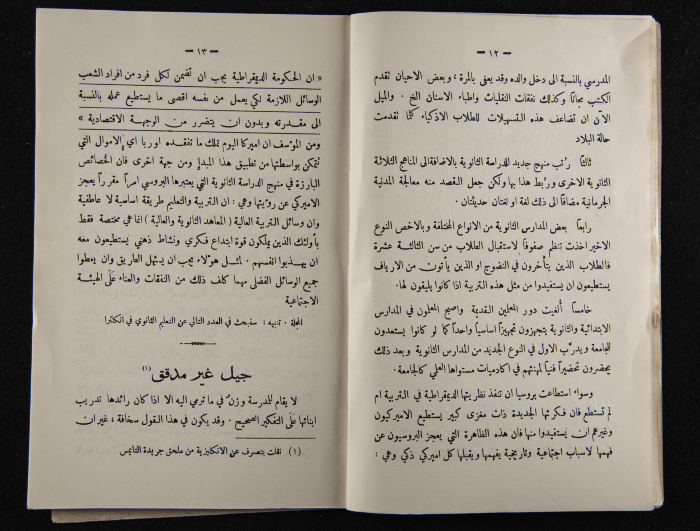 — ١٢ —
المدرسي بالنسبة الى دخل والده وقد يعفى بالمرة ؛ وبعض الاحيان تُقدم
الكتب مجاناً وكذلك نفقات النقليات واطباء الاسنان الخ . والميل
الآن ان تضاعف هذه التسهيلات للطلاب الاذكياء كلما تقدمت
حالة البلاد
ثالثاً رُتب منهج جديد للدراسة الثانوية بالاضافة الى المناهج الثلاثة
الثانوية الاخرى ورُبط هذا بها ولكن جعل القصد منه معالجة المدنية
الجرمانية مضافاً الى ذلك لغة او لغتان حديثتان .
رابعاً بعض المدارس الثانوية من الانواع المختلفة وبالاخص النوع
الاخير اخذت تنظم صفوفاً لاستقبال الطلاب من سن الثالثة عشرة
فالطلاب الذين يتأخرون في النضوج او الذين يأتون من الارياف
يستطيعون ان يستفيدوا من مثل هذه التربية اذا كانوا يليقون لها.
خامساً أُلغيت دور المعلمين القديمة واصبح المعلمون في المدارس
الابتدائية والثانوية يتجهزون تجهيزاً اساسياً واحداً كما لو كانوا يستعدون
للجامعة ويدرّب الاول في النوع الجديد من المدارس الثانوية وبعد ذلك
يحضرون تحضيراً فنياً لمهنتهم في اكادميات مستواها العلمي كالجامعة .
وسواء استطاعت بروسيا ان تنفذ نظريتها الديمقراطية في التربية ام
لم تستطع فان فكرتها الجديدة ذات مغزى كبير يستطيع الاميركيون
وغيرهم ان يستفيدوا منها فان هذه الظاهرة التي يعجز البروسيون عن
فهمها لاسباب اجتماعية وتاريخية يفهمها ويقبلها كل اميركي ذكي وهي :
— ١٣ —
« ان الحكومة الديمقراطية يجب ان تضمن لكل فرد من افراد الشعب
الوسائل اللازمة لكي يعمل من نفسه اقصى ما يستطيع عمله بالنسبة
الى مقدرته وبدون ان يتضرر من الوجهة الاقتصادية »
ومن المؤسف ان اميركا اليوم تملك ما تفقده اوربا اي الاموال التي
تتمكن بواسطتها من تطبيق هذا المبدإ ومن جهة اخرى فان الخصائص
البارزة في منهج الدراسة الثانوية التي يعتبرها البروسي امراً مقرراً يعجز
الاميركي عن رؤيتها وهي : ان التربية والتعليم طريقة اساسية لا عاطفية
وان وسائل التربية العالية ( المعاهد الثانوية والعالية ) انما هي مختصة فقط
بأولئك الذين يملكون قوة ابتداع فكري ونشاط ذهني يستطيعون معه
ان يهذبوا انفسهم . لمثل هؤلاء يجب ان يُسهل الطريق وان يعطوا
جميع الوسائل الفضلى مهما كلف ذلك من النفقات والعناء عَلَى الهيئة
الاجتماعية
المجلة . تنبيه : سنبحث في العدد التالي عن التعليم الثانوي في انكلترا
جيل غير مدقق (١)
لا يقام للمدرسة وزنٌ في ما ترمي اليه الا اذا كان رائدها تدريب
ابنائها عَلَى التفكير الصحيح . وقد يكون في هذا القول سخافة ؛ غير ان
(١) نقلت بتصرف عن الانكليزية من ملحق جريدة التايمس